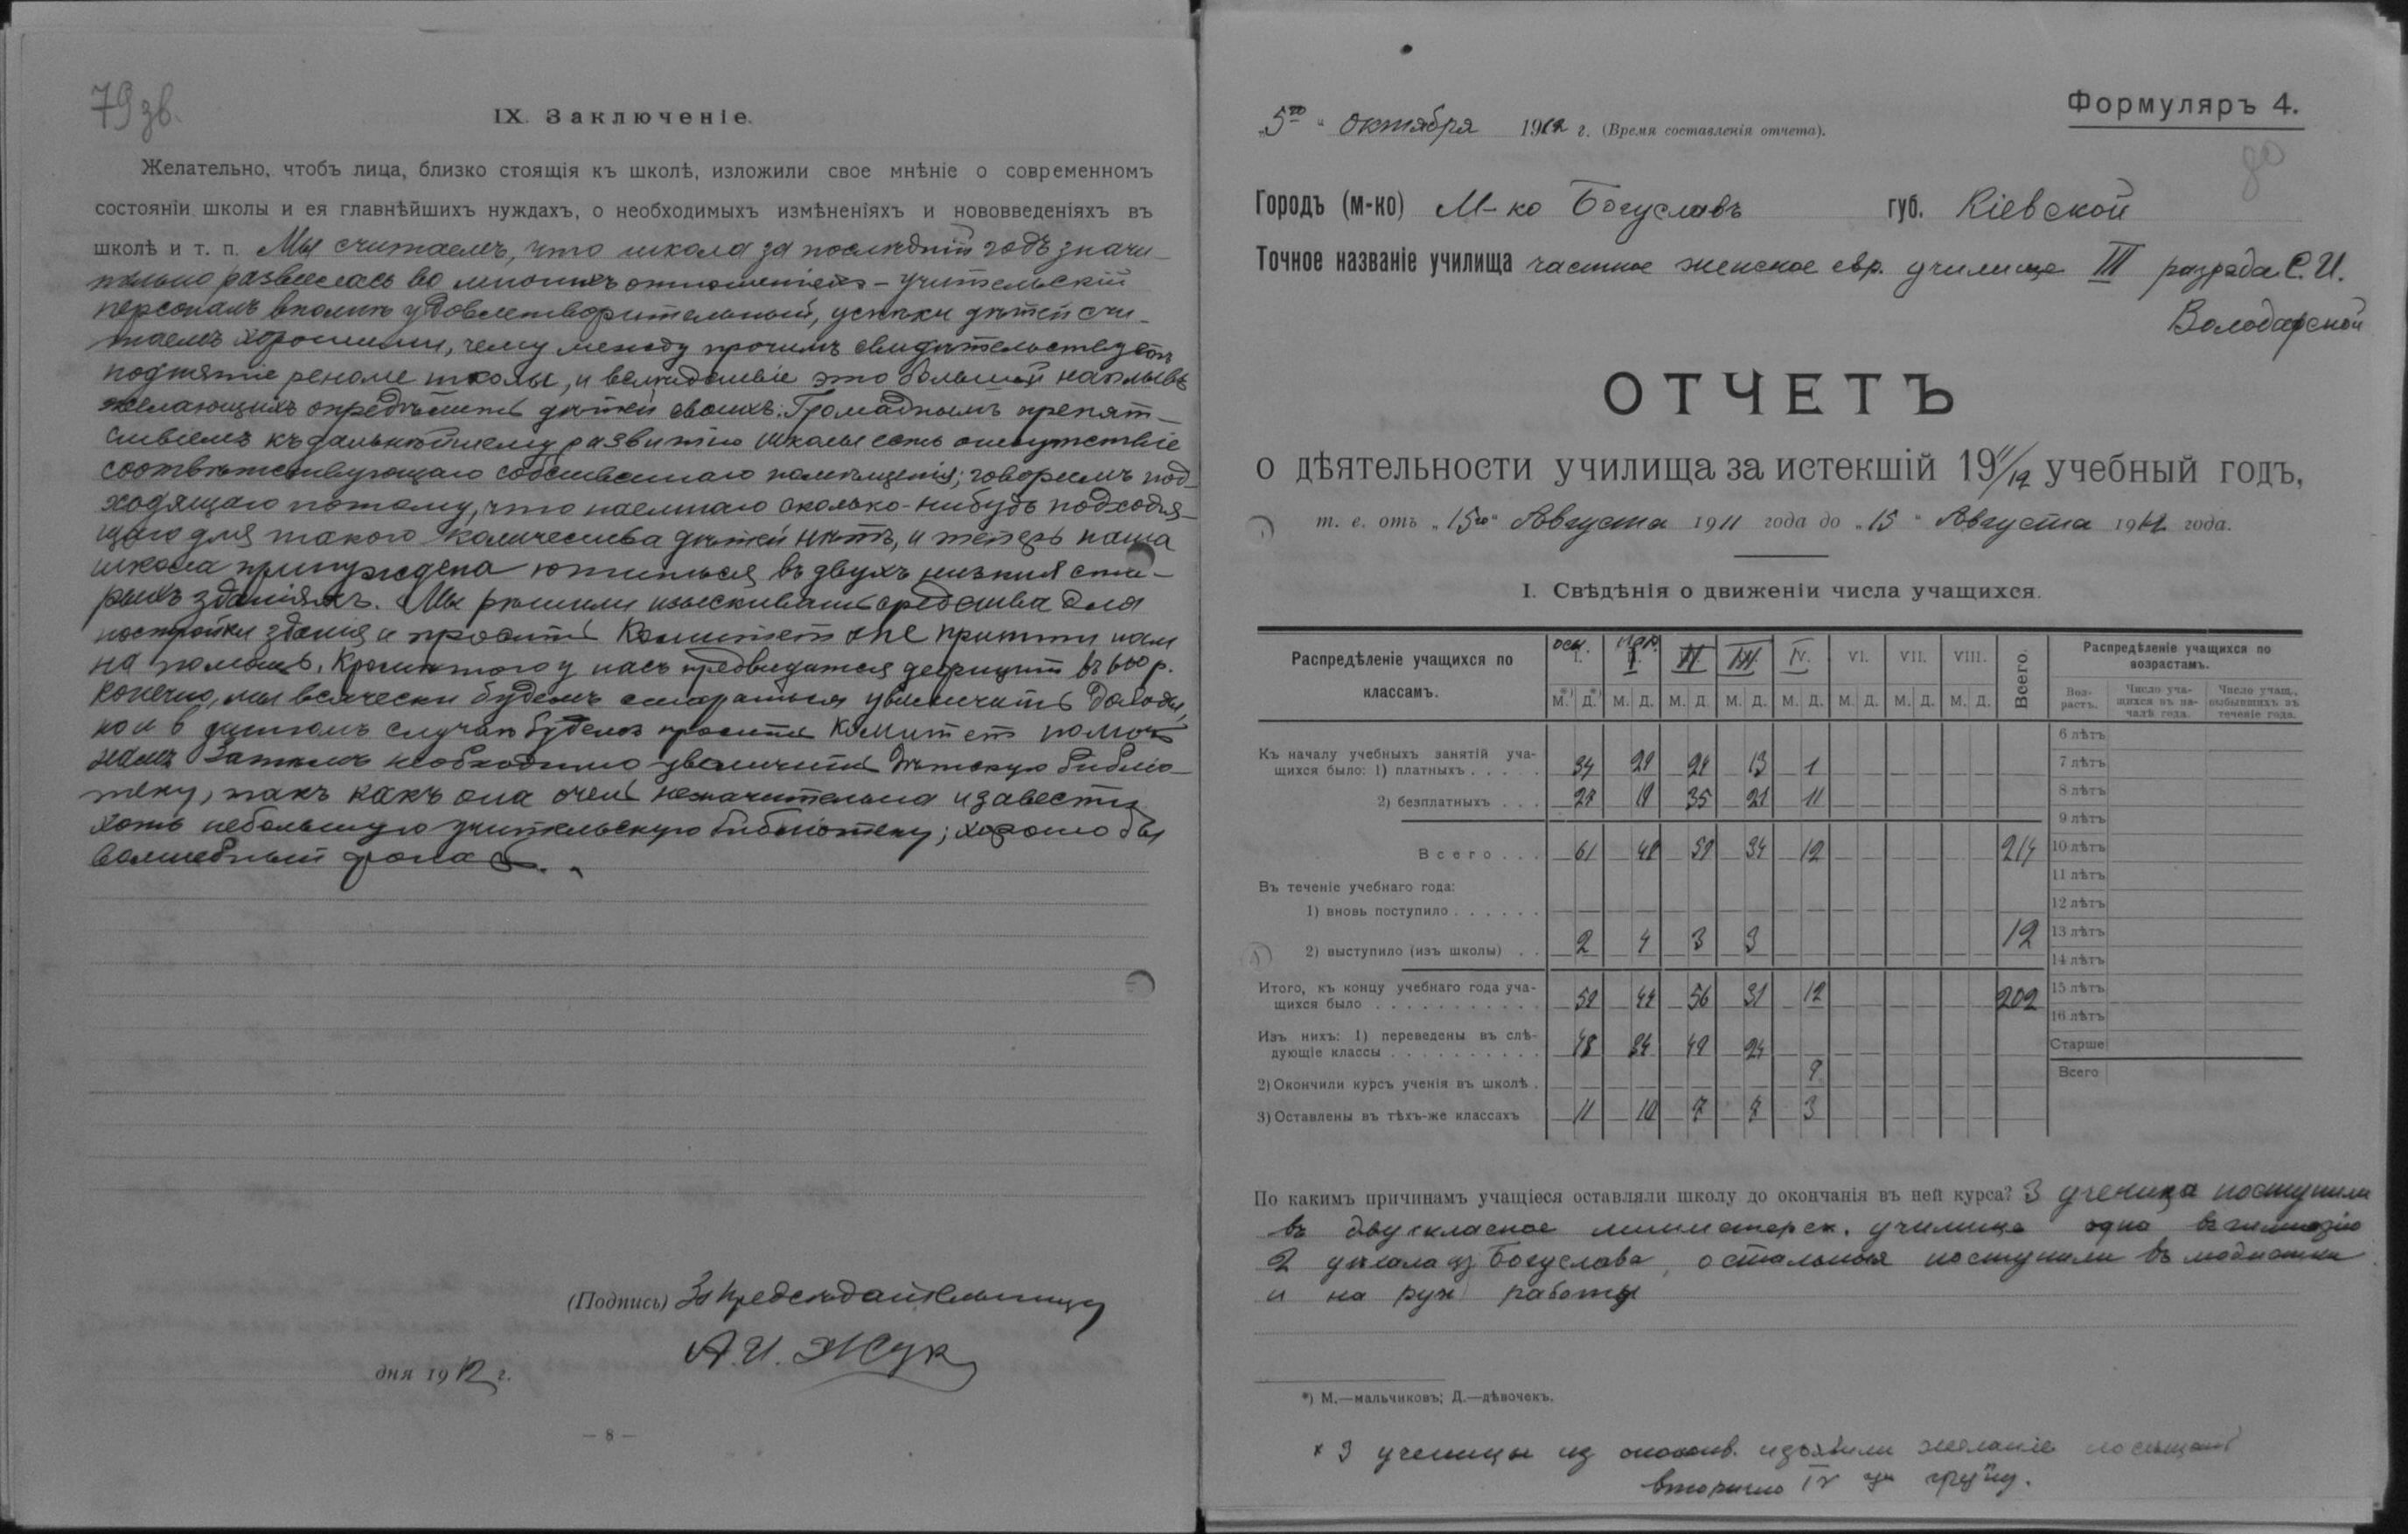 79 зв.
IX. Заключеніе.
Желательно, чтобъ лица, близко стоящія къ школѣ, изложили свое мнѣніе о современномъ
состояніи школы и ея главнѣйшихъ нуждахъ, о необходимыхъ измѣненіяхъ и нововведеніяхъ въ
школѣ и т. п. Мы считаемъ, что школа за послѣдній годъ значи-
тельно развилась во многихъ отношеніяхъ – учительскій
персоналъ вполнѣ удовлетворительный, успѣхи дѣтей счи-
таемъ хорошими, чему между прочимъ свидѣтельствуетъ
поднятіе реноме школы, и вслѣдствіе это большой наплывъ
желающихъ опредѣлить дѣтей своихъ. Громаднымъ препят-
ствіемъ къ дальнѣйшему развитію школы есть отсутствіе
соотвѣтствующаго собственнаго помѣщенія; говоримъ под-
ходящаго потому, что наемнаго сколько-нибудь подходя-
щаго для такого количества дѣтей нѣтъ, и теперь наша
школа принуждена ютиться въ двухъ низкихъ ста-
рыхъ зданіяхъ. Мы рѣшили изыскивать средства для
постройки зданія и просить Комитетъ ОПЕ притти намъ
на помощь. Кромѣ того у насъ предвидится дефицит въ 600 р.
Конечно, мы всячески будемъ стараться увеличить доходы,
но и в данномъ случаѣ будемъ просить Комитетъ помочь
намъ. Затѣмъ необходимо увеличить дѣтскую библіо-
теку, такъ какъ она очень незначительна и завести
хоть небольшую учительскую библіотеку; хорошо бы
волшебный фонарь.
(Подпись) За предсѣдательницу
А. И. Жук
дня 1912 г.
— 8 —
Формуляръ 4.
„5го“ октября 1912 г. (Время составленія отчета).
80
Городъ (м-ко) М-ко Богуславъ губ. Кіевской
Точное названіе училища частное женское евр. училище III разряда С. И.
Володарской
ОТЧЕТЪ
о дѣятельности училища за истекшій 1911/12 учебный годъ,
т. е. отъ „15го“ Августа 1911 года до „15“ Августа 1912 года.
I. Свѣдѣнія о движеніи числа учащихся.
Распредѣленіе учащихся по классамъ. I. II III IV. VI. VII. VIII. Всего. Распредѣленіе учащихся по возрастамъ.
М.*) Д.*) М. Д. М. Д. М. Д. М. Д. М. Д. М. Д. М. Д. Воз-растъ. Число уча-щихся въ на-чалѣ года. Число учащ., выбывшихъ въ теченіе года.
Къ началу учебныхъ занятій уча-
щихся было: 1) платныхъ 34 29 24 13 1
2) безплатныхъ 27 19 35 21 11
Всего 61 48 59 34 12 214
Въ теченіе учебнаго года:
1) вновь поступило
2) выступило (изъ школы) 2 4 3 3 12
Итого, къ концу учебнаго года уча-
щихся было 59 44 56 31 12 202
Изъ нихъ: 1) переведены въ слѣ-
дующіе классы 48 34 49 24
2) Окончили курсъ ученія въ школѣ 9
3) Оставлены въ тѣхъ-же классахъ 11 10 7 7 3
6 лѣтъ
7 лѣтъ
8 лѣтъ
9 лѣтъ
10 лѣтъ
11 лѣтъ
12 лѣтъ
13 лѣтъ
14 лѣтъ
15 лѣтъ
16 лѣтъ
Старше
Всего
По какимъ причинамъ учащіеся оставляли школу до окончанія въ ней курса? 3 ученица поступили
въ двуклассное министерск. училище одна в гимназію
2 уѣхала из Богуслава, остальныя поступили въ модистки
и на руч работы
*) М.—мальчиковъ; Д.—дѣвочекъ.
× 3 ученицы из изъявили желаніе посѣщать
вторично IV групу.